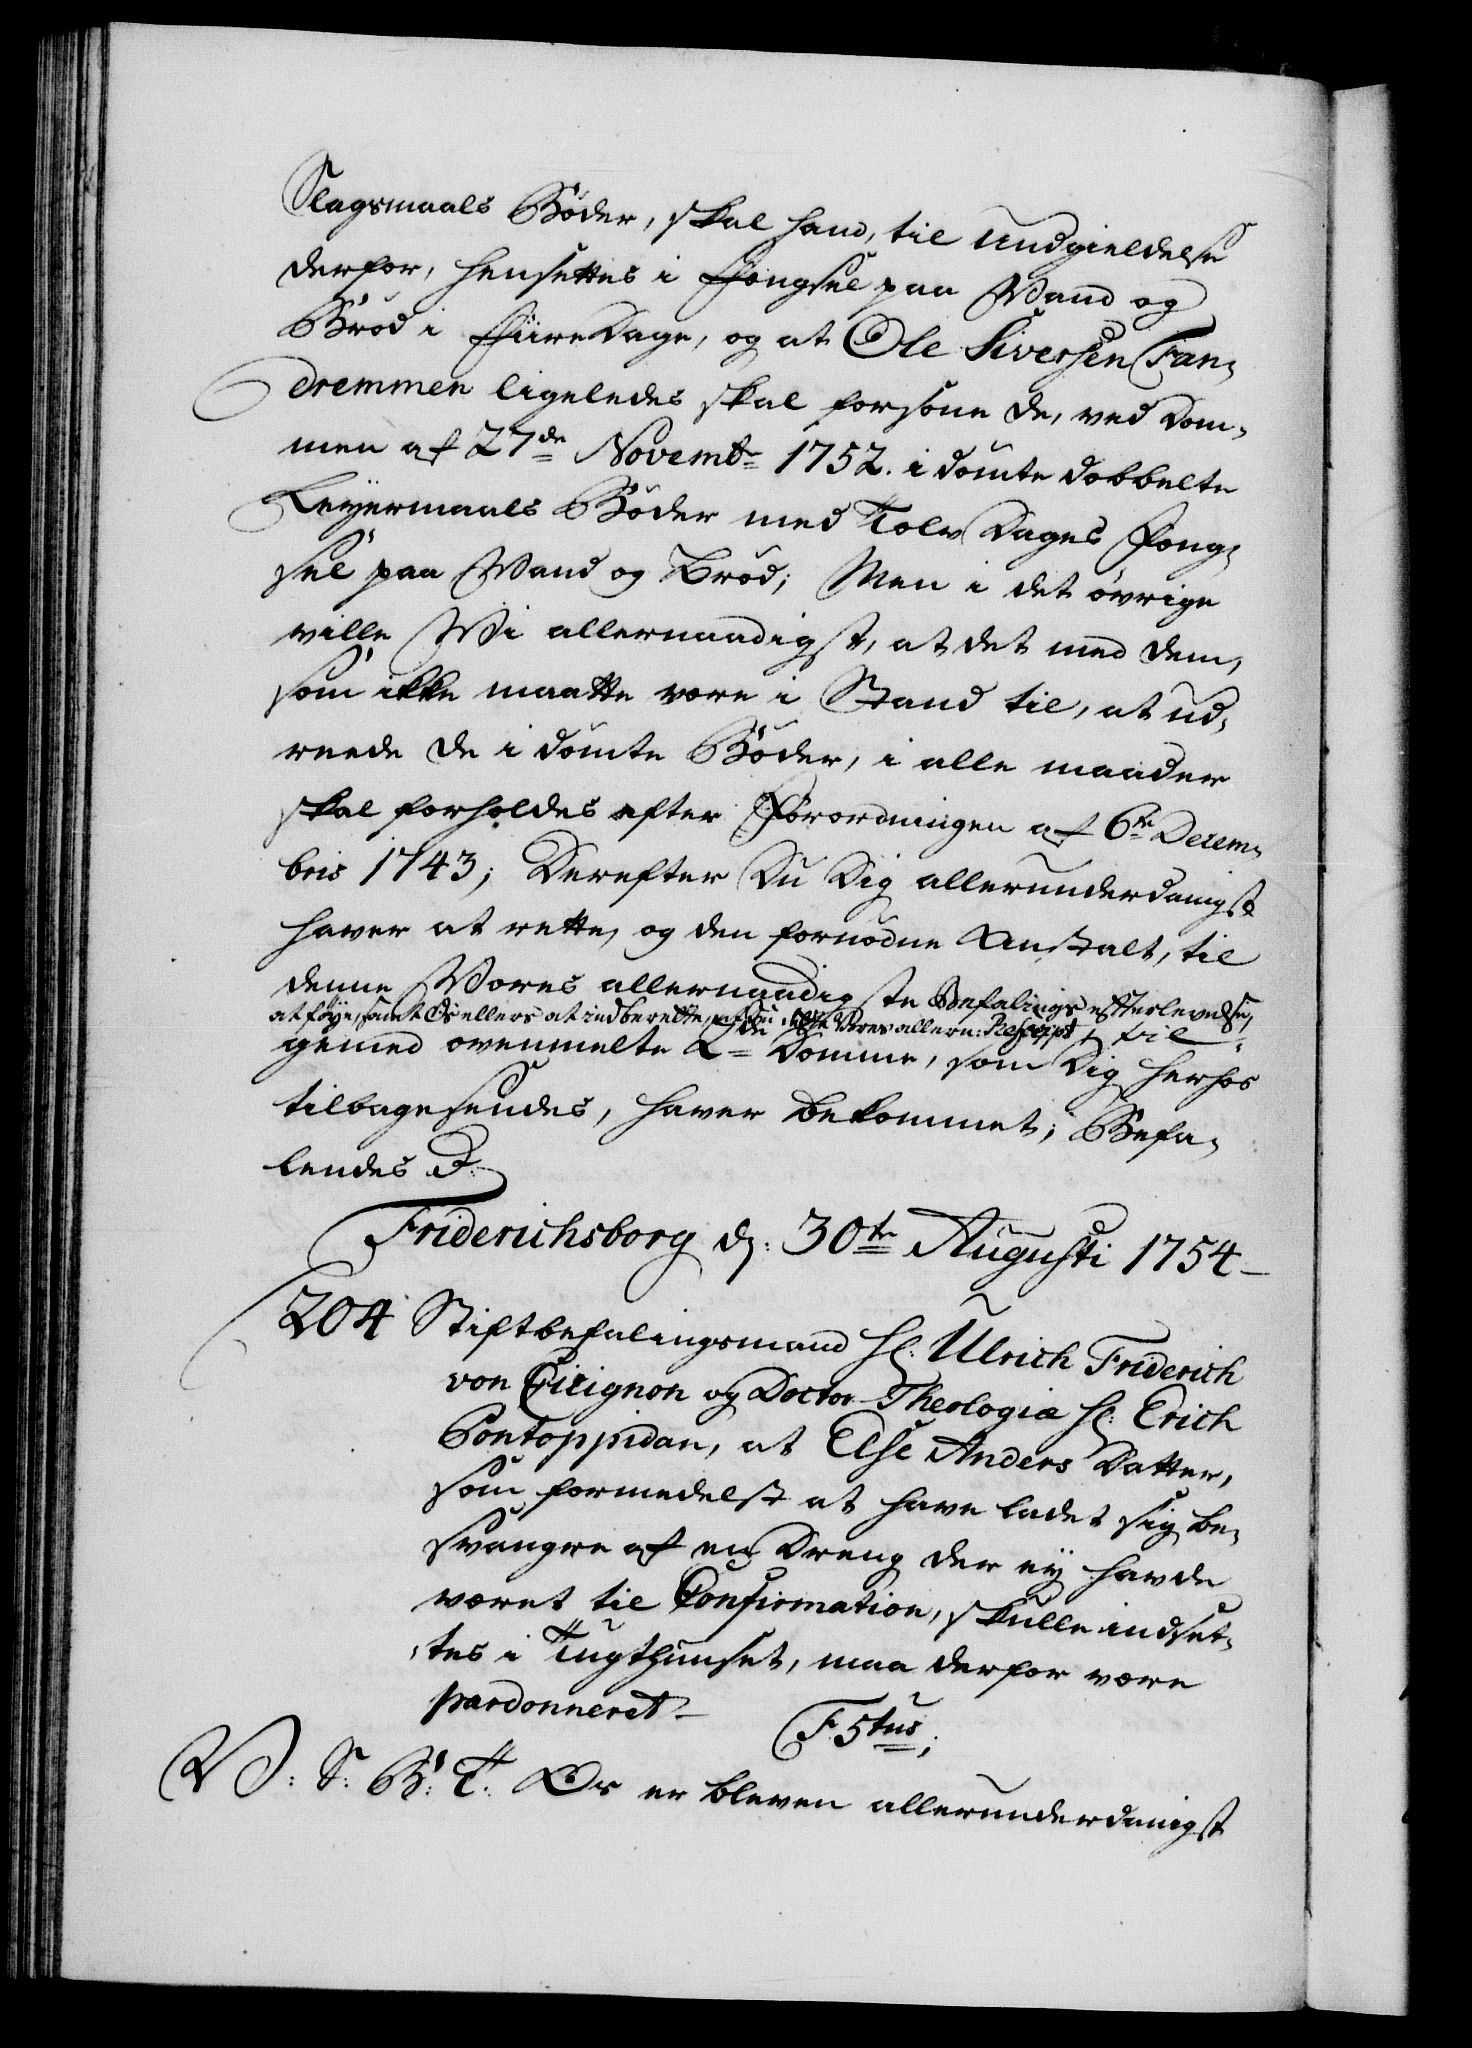 Slagsmaals Bøder, skal hand, til Undgieldelse
derfor, hensettes i Fængsel paa Vand og
Brød i fiire Dage, og at Ole Siversen Fan-
dremmen ligeledes skal forsone de, ved Dom-
men af 27de Novembr 1752. idømte dobbelte
Leyermaals Bøder med Tolv Dages Fæng-
sel paa Vand og Brød; Men i det øvrige
ville Wi allernaadigst, at det med dem,
som ikke maatte være i Stand til, at ud-
reede de idømte Bøder, i alle maader
skal forholdes efter Forordningen af 6te Decem-
bris 1743; Derefter Du Dig allerunderdanigst
haver at rette, og den fornødne Anstalt, til
denne Vores allernaadigste Befalings efterlevelse,
at føye, samt Os ellers at indberette, naar Du dette Vores allern: Rescript, til-
gemed ovenmelte 2de Domme, som Dig herhos
tilbagesendes, haver bekommet; Befa-
lendes D:
Friderichsborg d: 30te Augusti 1754
204 Stiftbefalingsmand Hr: Ulrich Friderich
von Cicignon og Doctor Theologiæ Hr: Erich
Pontoppidan, at Else Anders Datter,
som formedelst at have ladet sig be-
svangre af en Dreng der ey havde
været til Confirmation, skulle indset-
tes i Tugthuuset, maa derfor være
pardonneret
F 5tus;
V: S: B: T: Os er bleven allerunderdanigst